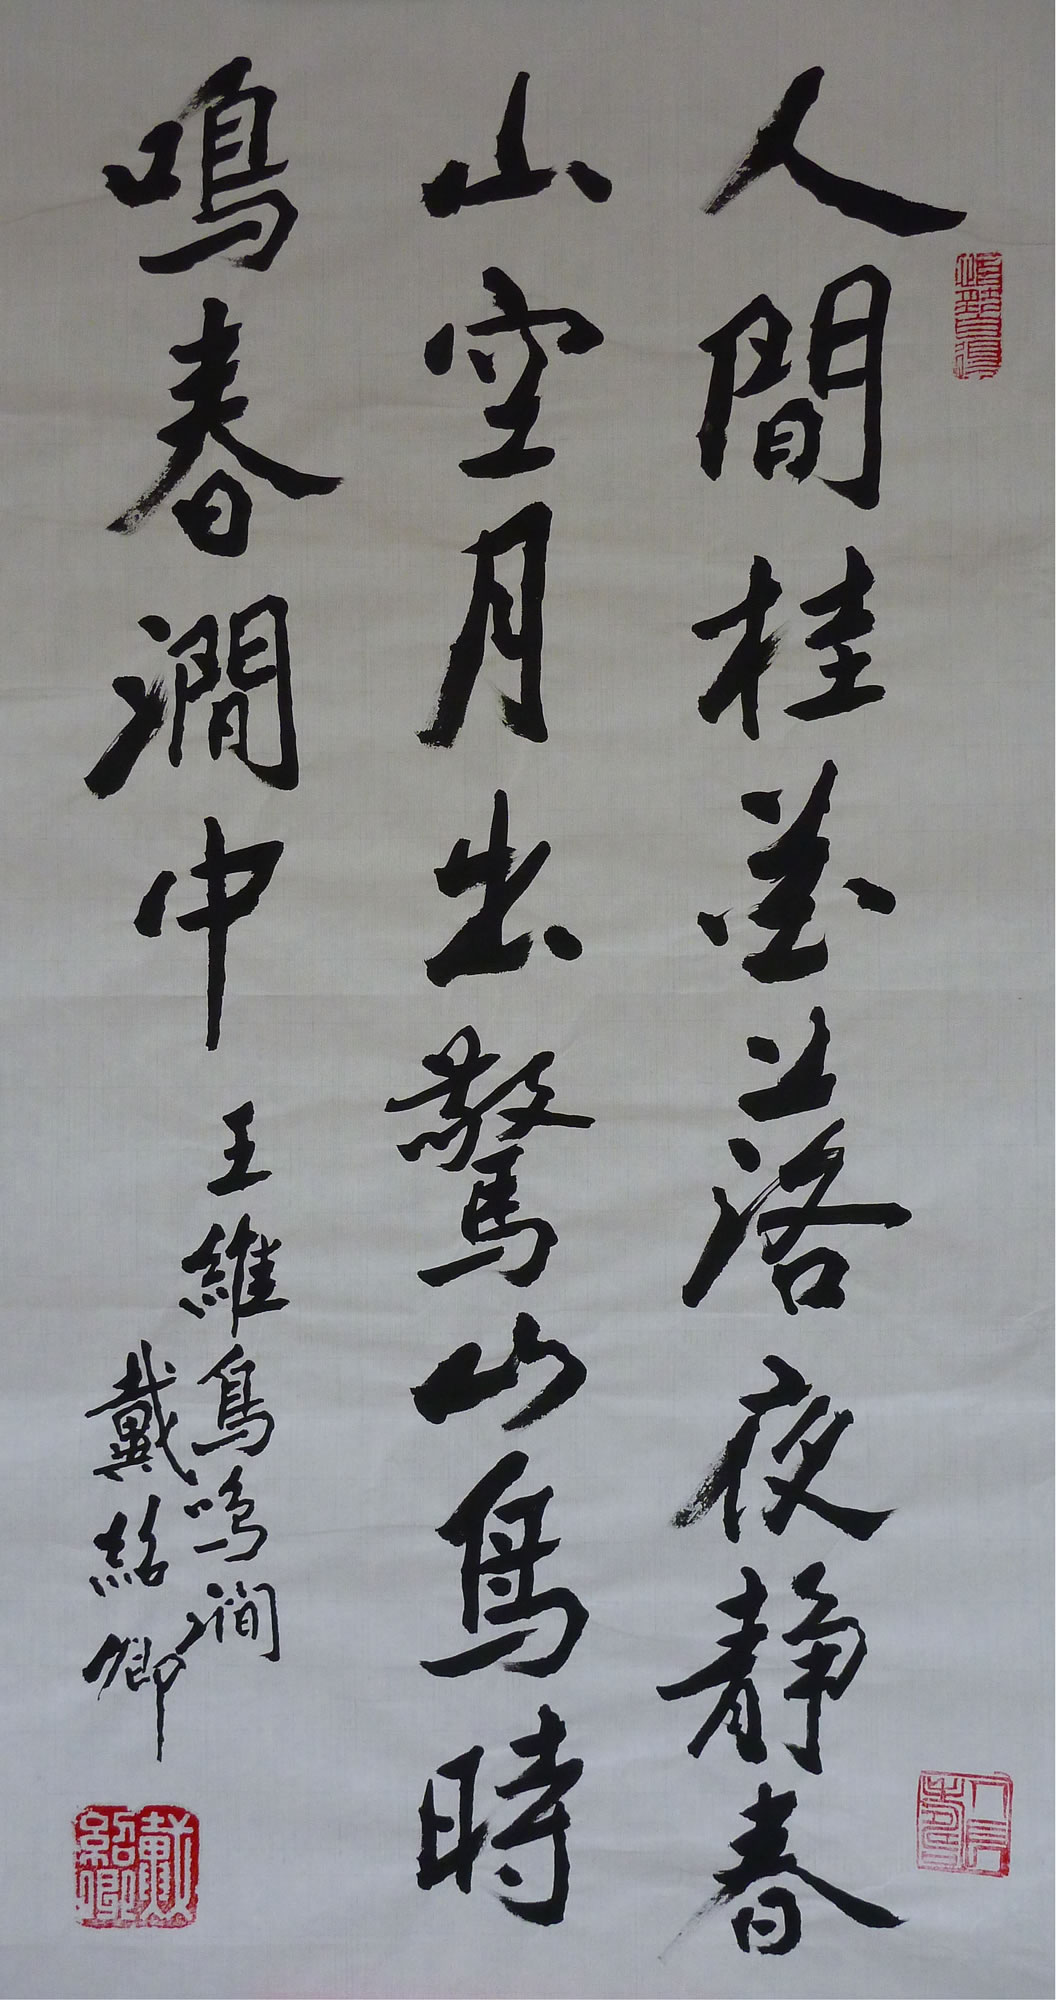 人間桂花落夜静春
山空月出驚山鳥時
鳴春澗中
王維鳥鳴澗
戴紹卿
戴紹卿